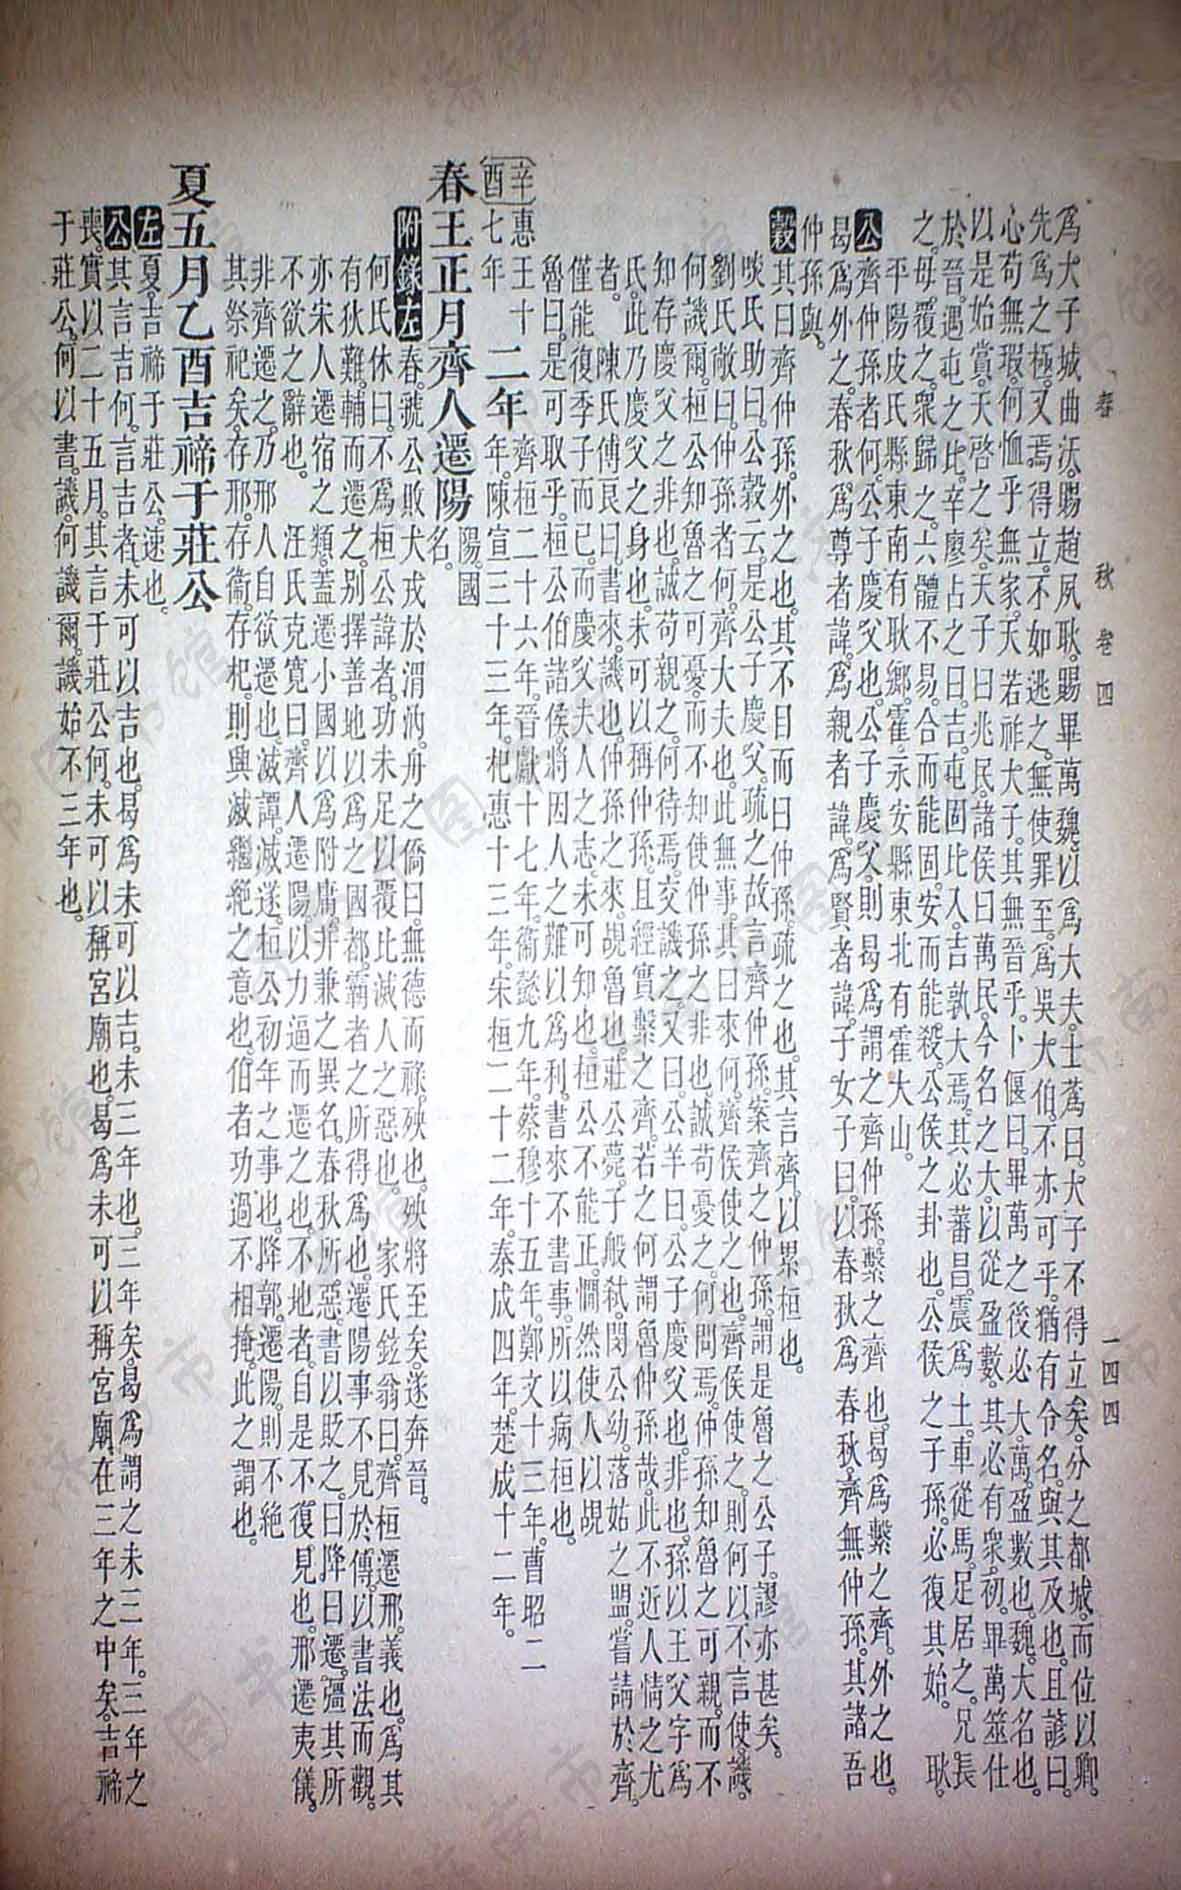 春　秋　卷四　一四四
爲大子城曲沃。賜趙夙耿。賜畢萬魏。以爲大夫。士蔿曰。大子不得立矣。分之都城。而位以卿。
先爲之極。又焉得立。不如逃之。無使罪至。爲吳大伯。不亦可乎。猶有令名。與其及也。且諺曰。
心苟無瑕。何恤乎無家。天若祚大子。其無晉乎。卜偃曰。畢萬之後必大。萬。盈數也。魏。大名也。
以是始賞。天啓之矣。天子曰兆民。諸侯曰萬民。今名之大。以從盈數。其必有衆。初。畢萬筮仕
於晉。遇屯之比。辛廖占之曰。吉。屯固比入。吉孰大焉。其必蕃昌。震爲土。車從馬。足居之。兄長
之。母覆之。衆歸之。六體不易。合而能固。安而能殺。公侯之卦也。公侯之子孫。必復其始。　耿。
平陽皮氏縣東南有耿鄉。霍。永安縣東北有霍大山。
公齊仲孫者何。公子慶父也。公子慶父。則曷爲謂之齊仲孫。繫之齊也。曷爲繫之齊。外之也。
曷爲外之。春秋。爲尊者諱。爲親者諱。爲賢者諱。子女子曰。以春秋爲春秋。齊無仲孫。其諸吾
仲孫與。
穀其曰齊仲孫。外之也。其不目而曰仲孫。疏之也。其言齊。以累桓也。
啖氏助曰。公穀云。是公子慶父。疏之故言齊。仲孫案齊之仲孫。謂是魯之公子。謬亦甚矣。
劉氏敞曰。仲孫者何。齊大夫也。此無事。其曰來何。齊侯使之也。齊侯使之。則何以不言使。譏。
何譏爾。桓公知魯之可憂。而不知使仲孫之非也。誠苟憂之。何問焉。仲孫知魯之可親。而不
知存慶父之非也。誠苟親之。何待焉。交譏之。又曰。公羊曰。公子慶父也。非也。孫以王父字爲
氏。此乃慶父之身也。未可以稱仲孫。且經實繫之齊。若之何謂魯仲孫哉。此不近人情之尤
者。　陳氏傅良曰。書來。譏也。仲孫之來。覘魯也。莊公薨。子般弒。閔公幼。落姑之盟。嘗請於齊。
僅能復季子而已。而慶父夫人之志。未可知也。桓公不能正。憪然使人以覘
魯曰。是可取乎。桓公伯諸侯。將因人之難以爲利。書來不書事。所以病桓也。
辛酉　惠王十七年　二年　齊桓二十六年。晉獻十七年。衞懿九年。蔡穆十五年。鄭文十三年。曹昭二年。陳宣三十三年。杞惠十三年。宋桓二十二年。秦成四年。楚成十二年。
春王正月齊人遷陽　陽。國名。
附錄左春。虢公敗犬戎於渭汭。舟之僑曰。無德而祿。殃也。殃將至矣。遂奔晉。
何氏休曰。不爲桓公諱者。功未足以覆比滅人之惡也。　家氏鉉翁曰。齊桓遷邢。義也。爲其
有狄難。輔而遷之。別擇善地以爲之國都。霸者之所得爲也。遷陽事不見於傳。以書法而觀。
亦宋人遷宿之類。蓋遷小國以爲附庸。幷兼之異名。春秋所惡。書以貶之。曰降曰遷。彊其所
不欲之辭也。　汪氏克寬曰。齊人遷陽。以力逼而遷之也。不地者。自是不復見也。邢遷夷儀。
非齊遷之。乃邢人自欲遷也。滅譚。滅遂。桓公初年之事也。降鄣。遷陽。則不絶
其祭祀矣。存邢。存衞。存杞。則興滅繼絕之意也。伯者功過不相掩。此之謂也。
夏五月乙酉吉禘于莊公
左夏。吉禘于莊公。速也。
公其言吉何。言吉者。未可以吉也。曷爲未可以吉。未三年也。三年矣。曷爲謂之未三年。三年之
喪。實以二十五月。其言于莊公何。未可以稱宮廟也。曷爲未可以稱宮廟。在三年之中矣。吉禘
于莊公。何以書。譏。何譏爾。譏始不三年也。